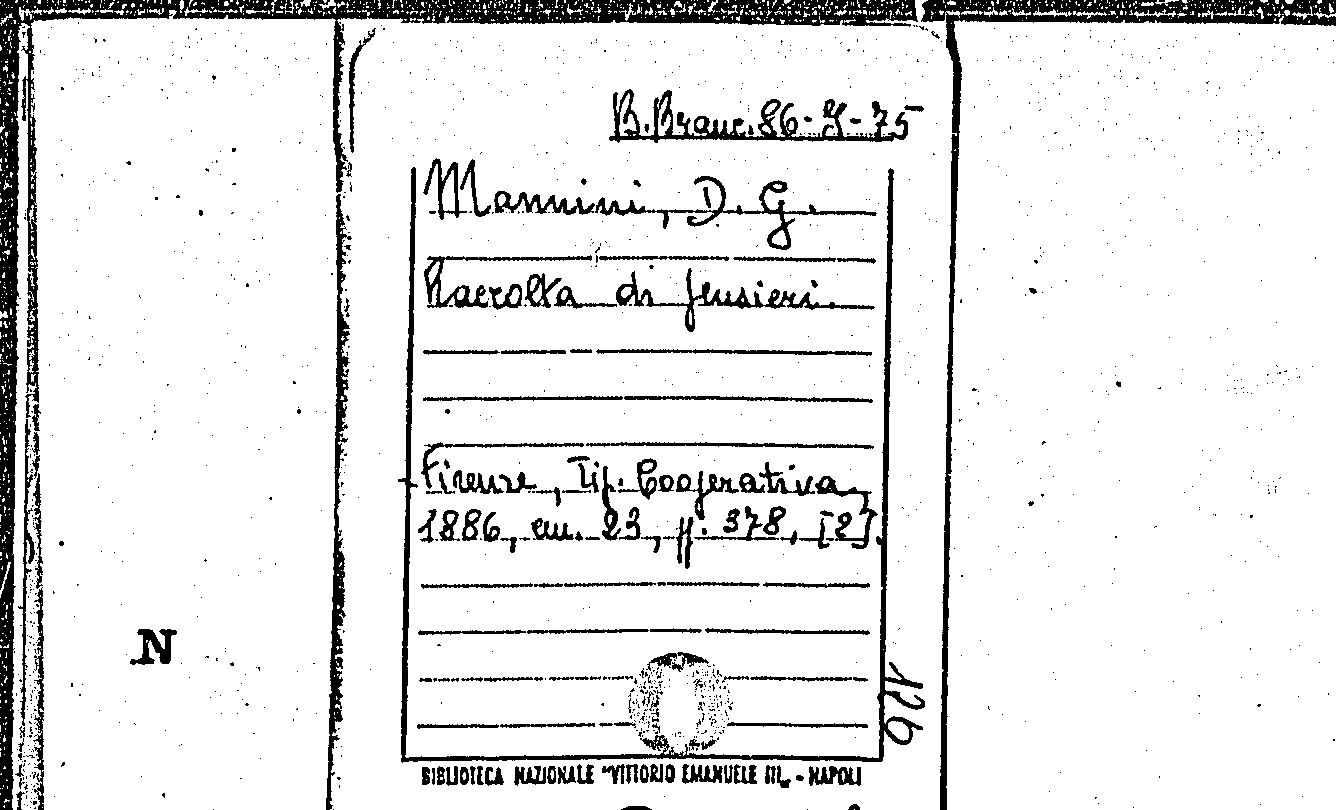 B.Branc.86-G-75
Mannini, D. G.
Raccolta di pensieri.
Firenze, Tip. Cooperativa,
1886, cm. 23, pp. 378, [2].
N
126
BIBLIOTECA NAZIONALE "VITTORIO EMANUELE III„ - NAPOLI